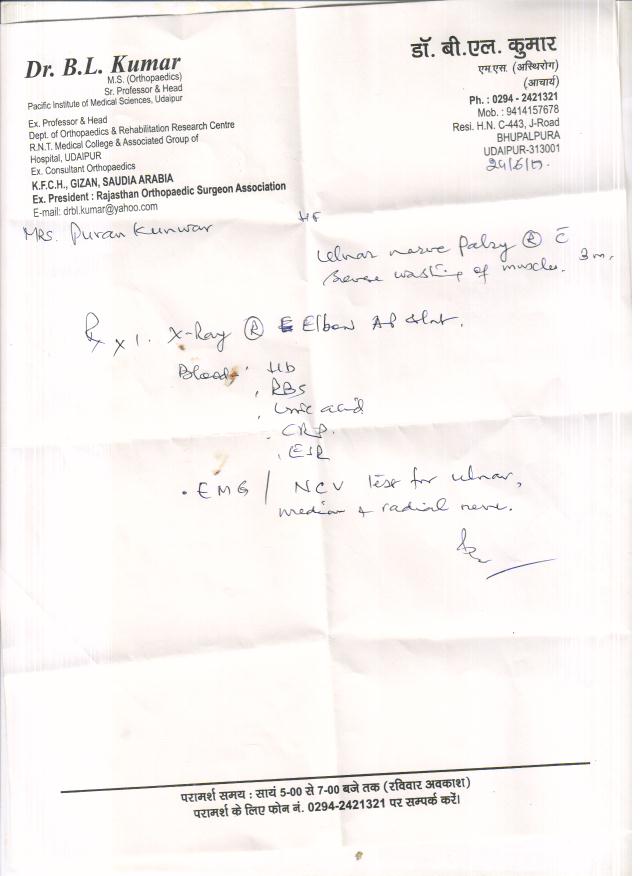 Dr. B.L. Kumar
M.S. (Orthopaedics)
Sr. Professor & Head
Pacific Institute of Medical Sciences, Udaipur
Ex. Professor & Head
Dept. of Orthopaedics & Rehabilitation Research Centre
R.N.T. Medical College & Associated Group of
Hospital, UDAIPUR
Ex. Consultant Orthopaedics
K.F.C.H., GIZAN, SAUDIA ARABIA
Ex. President : Rajasthan Orthopaedic Surgeon Association
E-mail: drbl.kumar@yahoo.com
डॉ. बी.एल. कुमार
एम.एस. (अस्थिरोग)
(आचार्य)
Ph. : 0294 - 2421321
Mob. : 9414157678
Resi. H.N. C-443, J-Road
BHUPALPURA
UDAIPUR-313001
MRS. Puran Kunwar
Ulnar nerve Palsy Ⓡ c̄
Severe wasting of muscles. 3 m.
Rx 1. X-Ray Ⓡ Elbow AP &
Blood Hb
RBS
Uric acid
CRP.
ESR
EMG / NCV Test for ulnar,
median + radial nerve.
परामर्श समय : सायं 5-00 से 7-00 बजे तक (रविवार अवकाश)
परामर्श के लिए फोन नं. 0294-2421321 पर सम्पर्क करें।